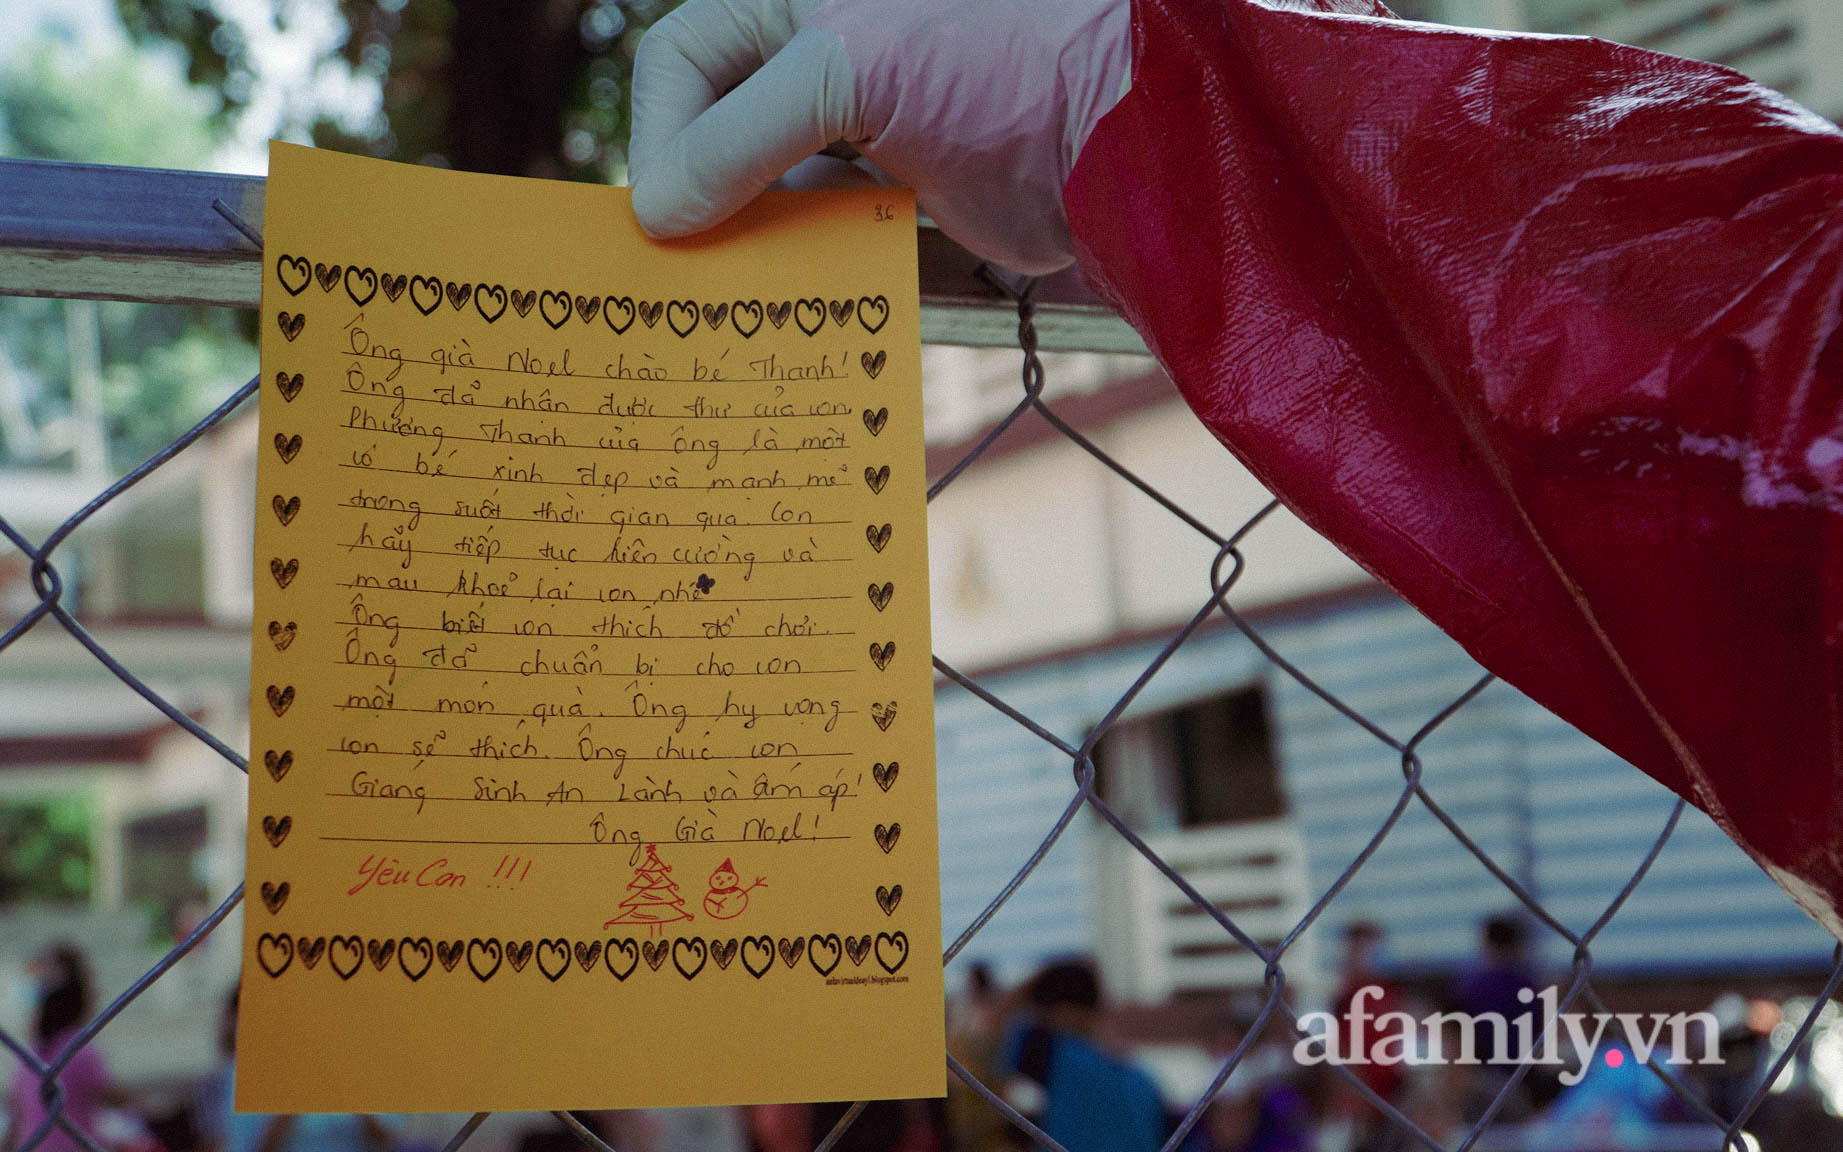 36
Ông già Noel chào bé Thanh!
Ông đã nhận được thư của con.
Phương Thanh của ông là một
cô bé xinh đẹp và mạnh mẽ
trong suốt thời gian qua. Con
hãy tiếp tục kiên cường và
mau khoẻ lại con nhé
Ông biết con thích đồ chơi.
Ông đã chuẩn bị cho con
một món quà. Ông hy vọng
con sẽ thích. Ông chúc con
Giáng Sinh An Lành và ấm áp!
Ông Già Noel!
Yêu Con !!!
afamily.vn